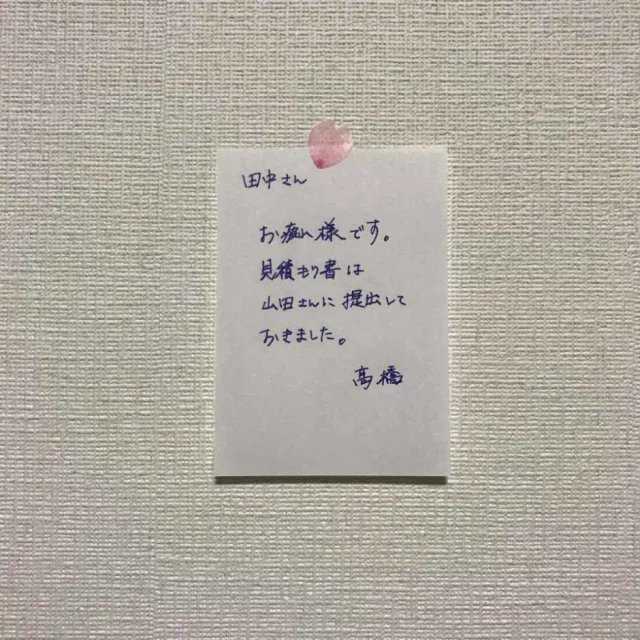 田中さん
お疲れ様です。
見積もり書は
山田さんに提出して
おきました。
高橋